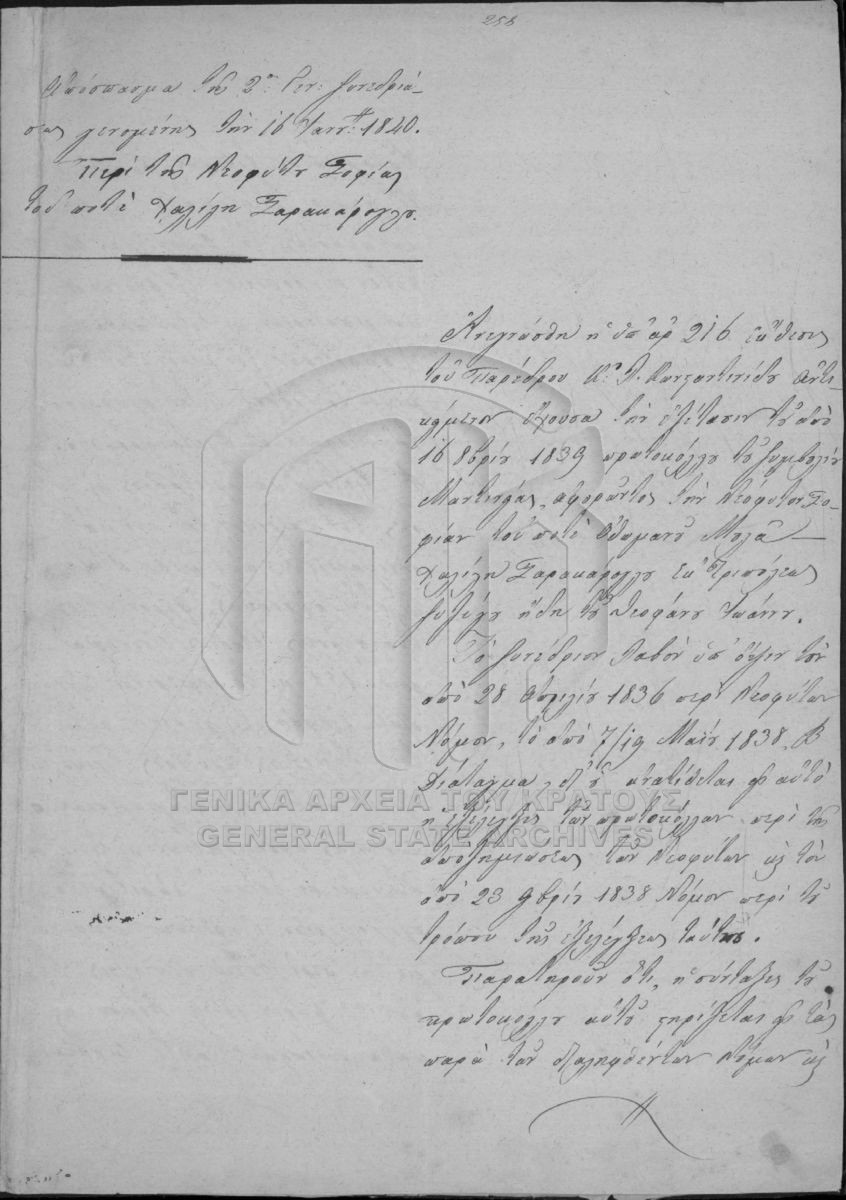 256
Ἀπόσπασμα τῆς 2ας Συνεδριά-
σεως γενομένης τὴν 16 Ἰανν: 1840.
Περὶ τῆς Νεοφύτου Σοφίας
τοῦ ποτὲ Χαλίλη Σαρακάρογλου.
Ἀνεγνώσθη ἡ ὑπ' ἀρ 216 ἔκθεσις
τοῦ Παρέδρου Κ. Κωνσταντινίδου ἀντι-
κείμενον ἔχουσα τὴν ἐξέτασιν τοῦ ἀπὸ
16 8βρίου 1839 πρωτοκόλλου τοῦ Συμβολ
Μαντινείας, ἀφορῶντος τὴν Νεόφυτον Σο-
φίαν τοῦ ποτὲ Μολᾶ
Χαλίλη Σαρακάρογλου ἐκ Τριπόλεως
συζύγου ἤδη τοῦ Θεοφάνου Ἰωάννου.
Τὸ Συνέδριον λαβὸν ὑπ' ὄψιν τὸν
ἀπὸ 28 Ἀπριλίου 1836 περὶ Νεοφύτων
Νόμον, τὸ ἀπὸ 7/19 Μαΐου 1838 Β
Διάταγμα, δι' οὗ ἀνατίθεται εἰς αὐτὸ
ἡ ἐξέλεγξις τῶν πρωτοκόλλων περὶ τῆς
ἀποζημιώσεως τῶν Νεοφύτων κ τὸν
ἀπὸ 23 9βρίου 1838 Νόμον περὶ τοῦ
τρόπου τῆς ἐξελέγξεως ταύτης.
Παρατηροῦν ὅτι, ἡ σύνταξις τοῦ
πρωτοκόλλου αὐτοῦ στηρίζεται εἰς τὰς
παρὰ τῶν διαληφθέντων Νόμων κ
ΓΕΝΙΚΑ ΑΡΧΕΙΑ ΤΟΥ ΚΡΑΤΟΥΣ
GENERAL STATE ARCHIVES